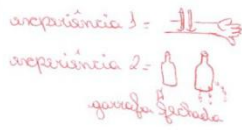 experiência 1 =
experiência 2 =
garrafa fechada